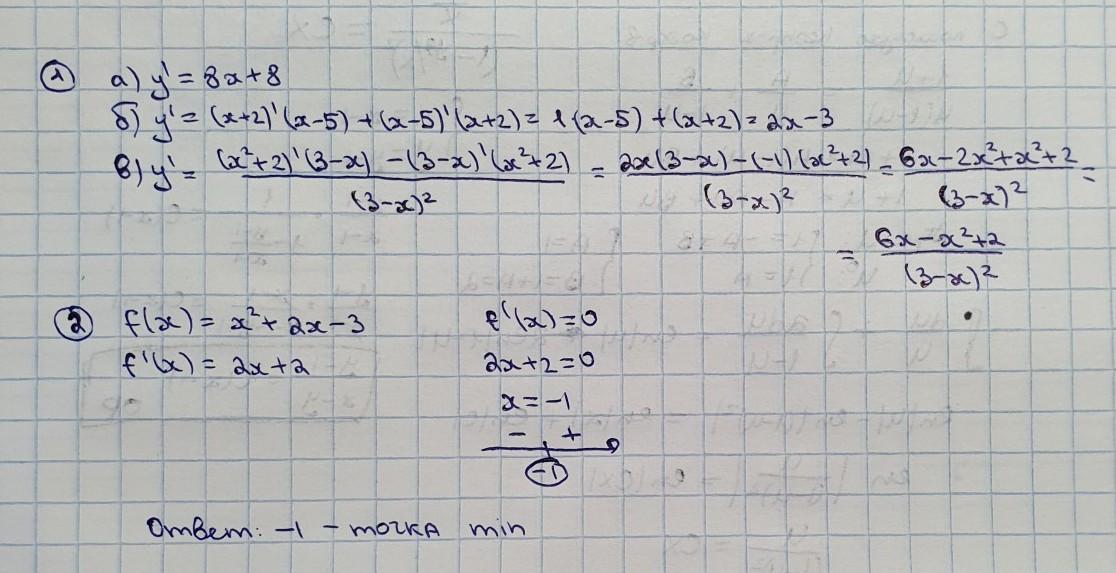 ① а) y' = 8x+8
б) y' = (x+2)'(x-5) + (x-5)'(x+2) = 1(x-5) + (x+2) = 2x-3
в) y' = \frac{(x²+2)'(3-x) - (3-x)'(x²+2)}{(3-x)²} = \frac{2x(3-x) - (-1)(x²+2)}{(3-x)²} = \frac{6x-2x²+x²+2}{(3-x)²} =
= \frac{6x-x²+2}{(3-x)²}
② f(x) = x²+2x-3
f'(x) = 2x+2
f'(x) = 0
2x+2=0
x = -1
- +
-1
Ответ: -1 - точка min